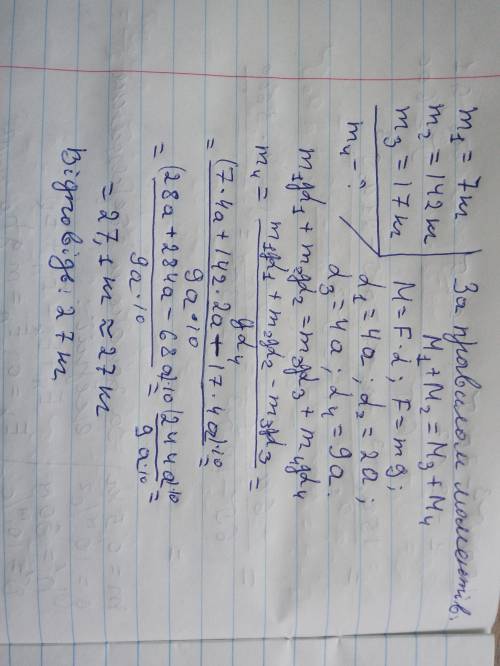 m₁ = 7т
m₂ = 142т
m₃ = 17т
m₄ - ?
За правилом моментів:
M₁ + M₂ = M₃ + M₄
M = F · d ; F = mg ;
d₁ = 4a ; d₂ = 2a ;
d₃ = 4a ; d₄ = 9a.
m₁gd₁ + m₂gd₂ = m₃gd₃ + m₄gd₄
m₄ = (m₁gd₁ + m₂gd₂ - m₃gd₃) / gd₄ =
= (7·4a + 142·2a - 17·4a)·10 / 9a·10 =
= (28a + 284a - 68a)·10 / 9a·10 = (244a)·10 / 9a·10 =
= 27,1 т ≈ 27т
Відповідь: 27т